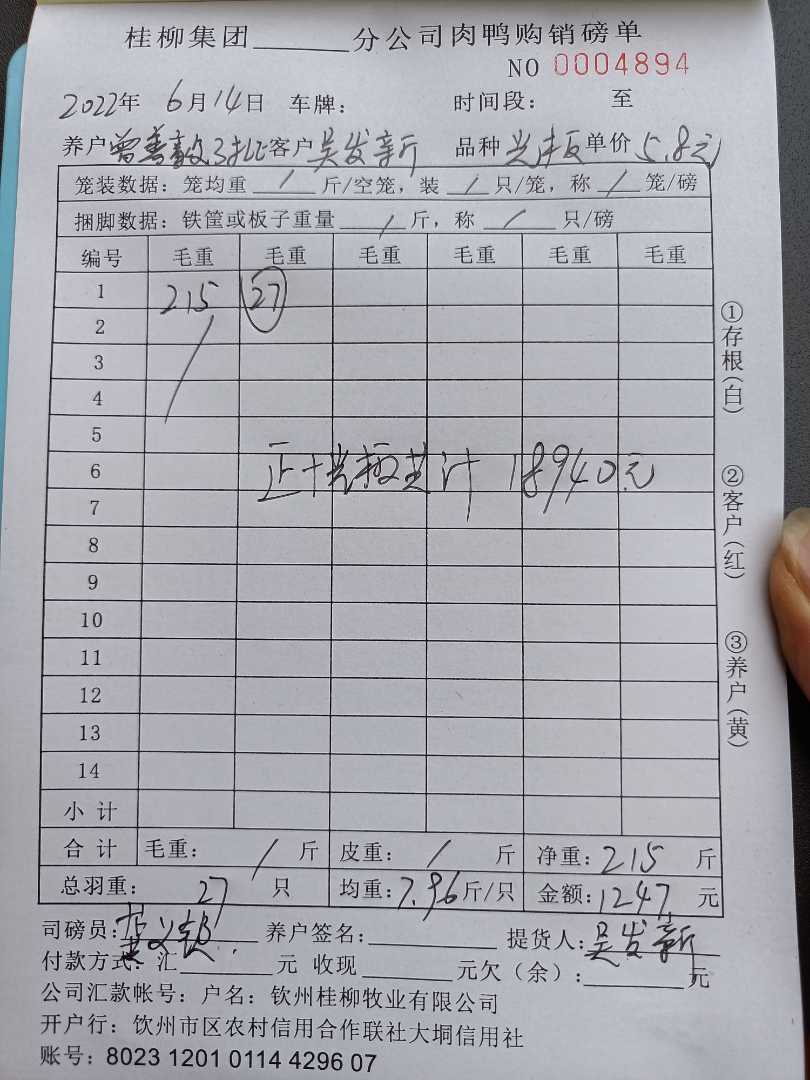 桂柳集团______分公司肉鸭购销磅单
NO 0004894
2022年 6月14日 车牌: 时间段: 至
养户曾善毅3批客户吴发新 品种 光板 单价 5.8元
笼装数据: 笼均重 / 斤/空笼, 装 / 只/笼, 称 / 笼/磅
捆脚数据: 铁筐或板子重量 / 斤, 称 / 只/磅
编号 毛重 毛重 毛重 毛重 毛重 毛重
1 215 27
2
3
4
5
6 正+光板共计 18940元
7
8
9
10
11
12
13
14
小计
合计 毛重: / 斤 皮重: / 斤 净重: 215 斤
总羽重: 27 只 均重: 7.96斤/只 金额: 1247 元
司磅员: 养户签名: 提货人: 吴发新
付款方式: 汇______元 收现______元欠（余）: ______元
公司汇款帐号: 户名: 钦州桂柳牧业有限公司
开户行: 钦州市区农村信用合作联社大垌信用社
账号: 8023 1201 0114 4296 07
①存根(白)
②客户(红)
③养户(黄)